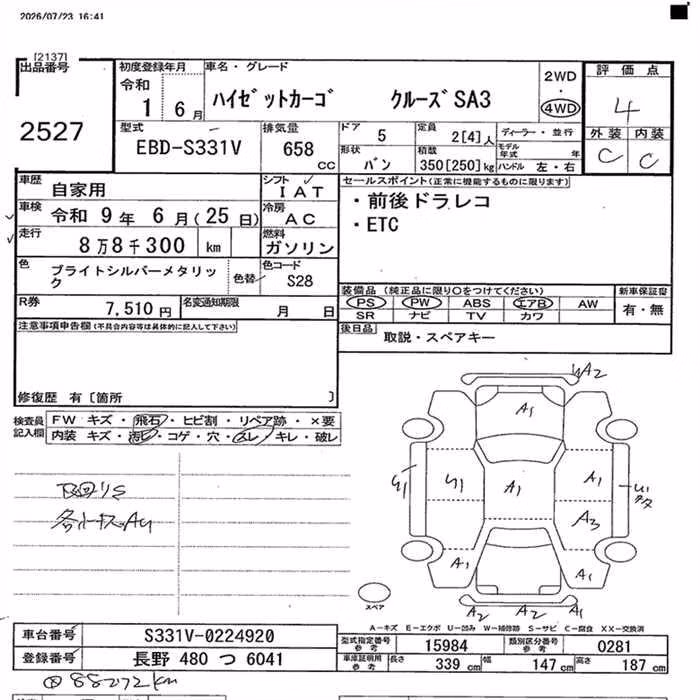 2026/07/23 16:41
[2137]
出品番号
2527
初度登録年月
令和
1 6月
車名・グレード
ハイゼットカーゴ クルーズSA3
2WD
・
4WD
評価点
4
外装 内装
C C
型式
EBD-S331V
排気量
658 CC
ドア 5
形状 バン
定員 2[4]人
積載 350[250]kg
ディーラー・並行
モデル年式 年
ハンドル 左・右
車歴 自家用
シフト IAT
車検 令和 9年 6月(25日)
冷房 AC
走行 8万8千300 km
燃料 ガソリン
色 ブライトシルバーメタリック
色替
色コード S28
R券 7,510円
名変通知期限 月 日
セールスポイント(正常に機能するものに限ります)
・前後ドラレコ
・ETC
装備品 (純正品に限り○をつけてください)
PS PW ABS エアB AW
SR ナビ TV カワ
新車保証書
有・無
後日品 取説・スペアキー
注意事項申告欄(不具合内容等は具体的に記入して下さい)
修復歴 有[箇所 ]
検査員記入欄
FW キズ・飛石・ヒビ割・リペア跡・×要
内装 キズ・汚レ・コゲ・穴・スレ・キレ・破レ
A2
A1
A1
A1
A1
A3
A1
A1
A2 A2 A1
スペア
A-キズ E-エクボ U-凹み W-補修跡 S-サビ C-腐食 XX-交換済
車台番号 S331V-0224920
登録番号 長野 480 つ 6041
型式指定番号参考 15984
類別区分番号参考 0281
車庫証明用参考 長さ 339 cm 幅 147 cm 高さ 187 cm
88272km